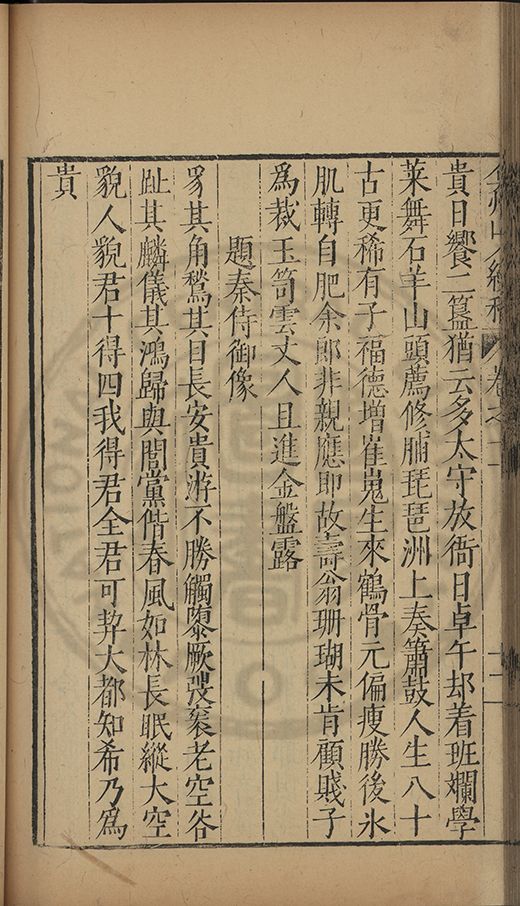 貴日饗二簋猶云多太守放衙日卓午却着班斕學
萊舞石羊山頭薦修脯琵琶洲上奏簫鼓人生八十
古更稀有子福德增崔嵬生來鶴骨元偏瘦勝後氷
肌轉自肥余郎非親應即故壽翁珊瑚未肯顧賤子
爲裁玉笥雲丈人且進金盤露
題秦侍御像
豸其角鷙其目長安貴游不勝觸隳厥老空谷
趾其麟儀其鴻歸與閭黨偕春風如林長眠縱大空
貌人貌君十得四我得君全君可契大都知希乃爲
貴